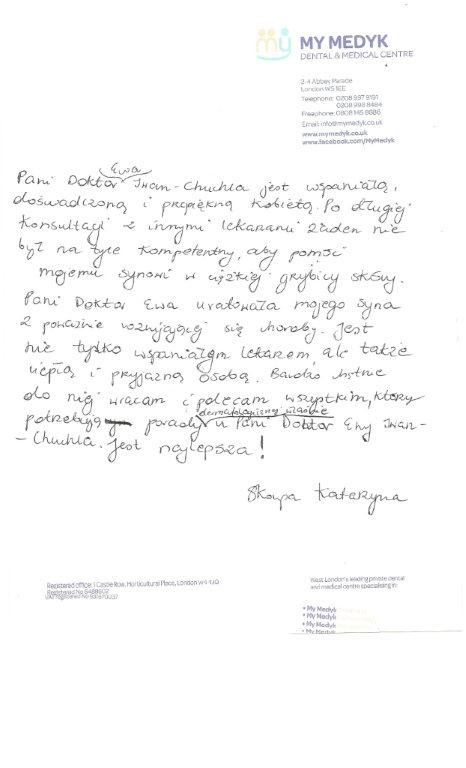 my MY MEDYK
DENTAL & MEDICAL CENTRE
2-4 Abbey Parade
London W5 1EE
Telephone: 0208 997 9191
0208 998 8484
Freephone: 0808 145 8686
Email: info@mymedyk.co.uk
www.mymedyk.co.uk
www.facebook.com/MyMedyk
Pani Doktor Ewa Iwan-Chuchla jest wspaniałą,
doświadczoną i przepiękną kobietą. Po długiej
konsultacji z innymi lekarzami żaden nie
był na tyle kompetentny, aby pomóc
mojemu synowi w ciężkiej grzybicy skóry.
Pani Doktor Ewa uratowała mojego syna
z poważnie rozwijającej się choroby. Jest
nie tylko wspaniałym lekarzem, ale także
ciepłą i przyjazną osobą. Bardzo chętnie
do niej wracam i polecam wszystkim, którzy
potrzebują porady dermatologicznej właśnie u Pani Doktor Ewy Iwan-
-Chuchla. Jest najlepsza!
Skorpa Katarzyna
Registered office: 1 Castle Row, Horticultural Place, London W4 4JQ
Registered No 6488602
VAT registered No
West London's leading private dental
and medical centre specialising in:
• My Medyk
• My Medyk
• My Medyk
• My Medyk